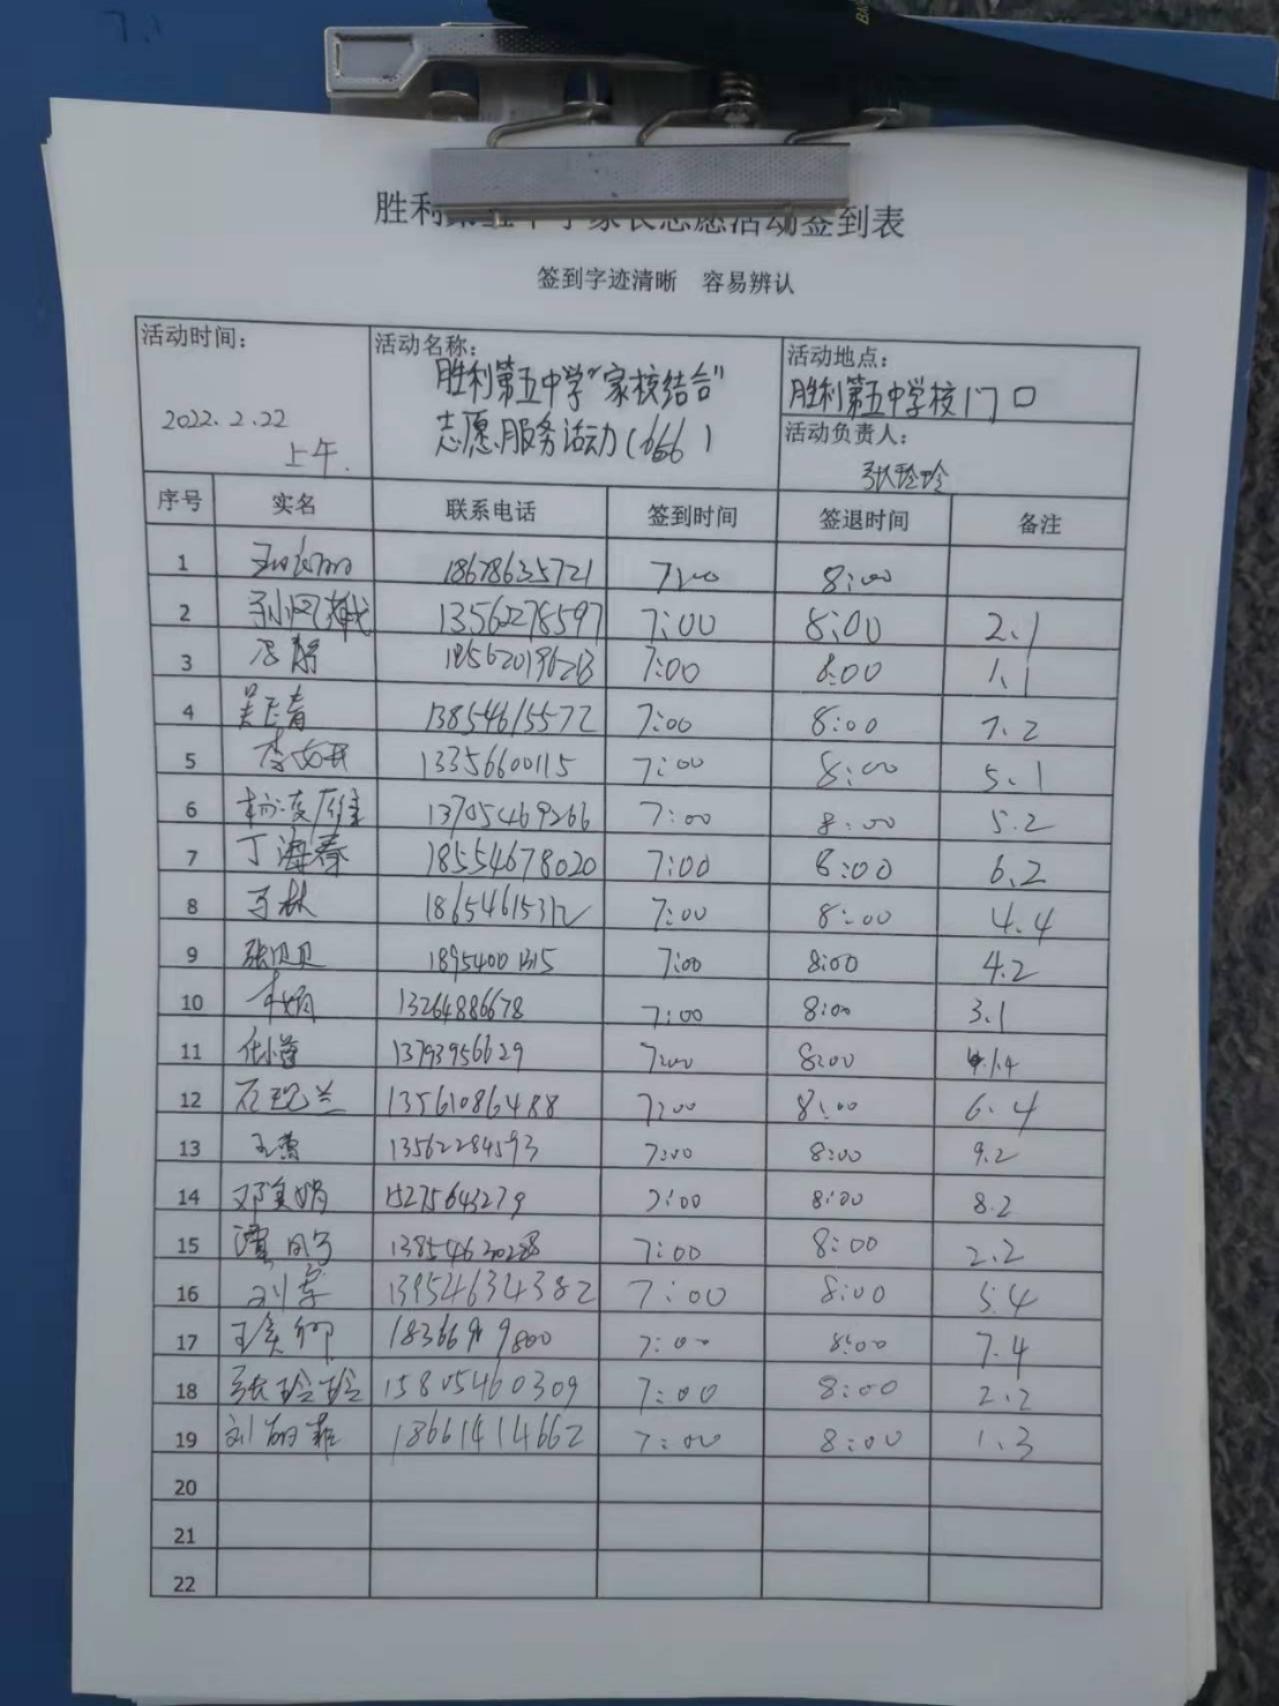 胜利第五中学家长志愿活动签到表
签到字迹清晰 容易辨认
活动时间:
2022.2.22
上午.
活动名称:
胜利第五中学"家校结合"
志愿服务活动(666)
活动地点:
胜利第五中学校门口
活动负责人:
张玲玲
序号 实名 联系电话 签到时间 签退时间 备注
1 18678635721 7:00 8:00
2 13562278597 7:00 8:00 2.1
3 7:00 8:00 1.1
4 吴飞青 13854615572 7:00 8:00 7.2
5 13356600115 7:00 8:00 5.1
6 13705469266 7:00 8:00 5.2
7 丁海春 18554678020 7:00 8:00 6.2
8 马林 18654615312 7:00 8:00 4.4
9 张贝贝 18954001315 7:00 8:00 4.2
10 李娟 13264886678 7:00 8:00 3.1
11 13793956629 7:00 8:00
12 石现兰 13561086488 7:00 8:00 6.4
13 王蕾 13562284593 7:00 8:00 9.2
14 邓美娟 15275643279 7:00 8:00 8.2
15 7:00 8:00 2.2
16 13954634382 7:00 8:00 5.4
17 7:00 8:00 7.4
18 张玲玲 15805460309 7:00 8:00 2.2
19 18661414662 7:00 8:00 1.3
20
21
22